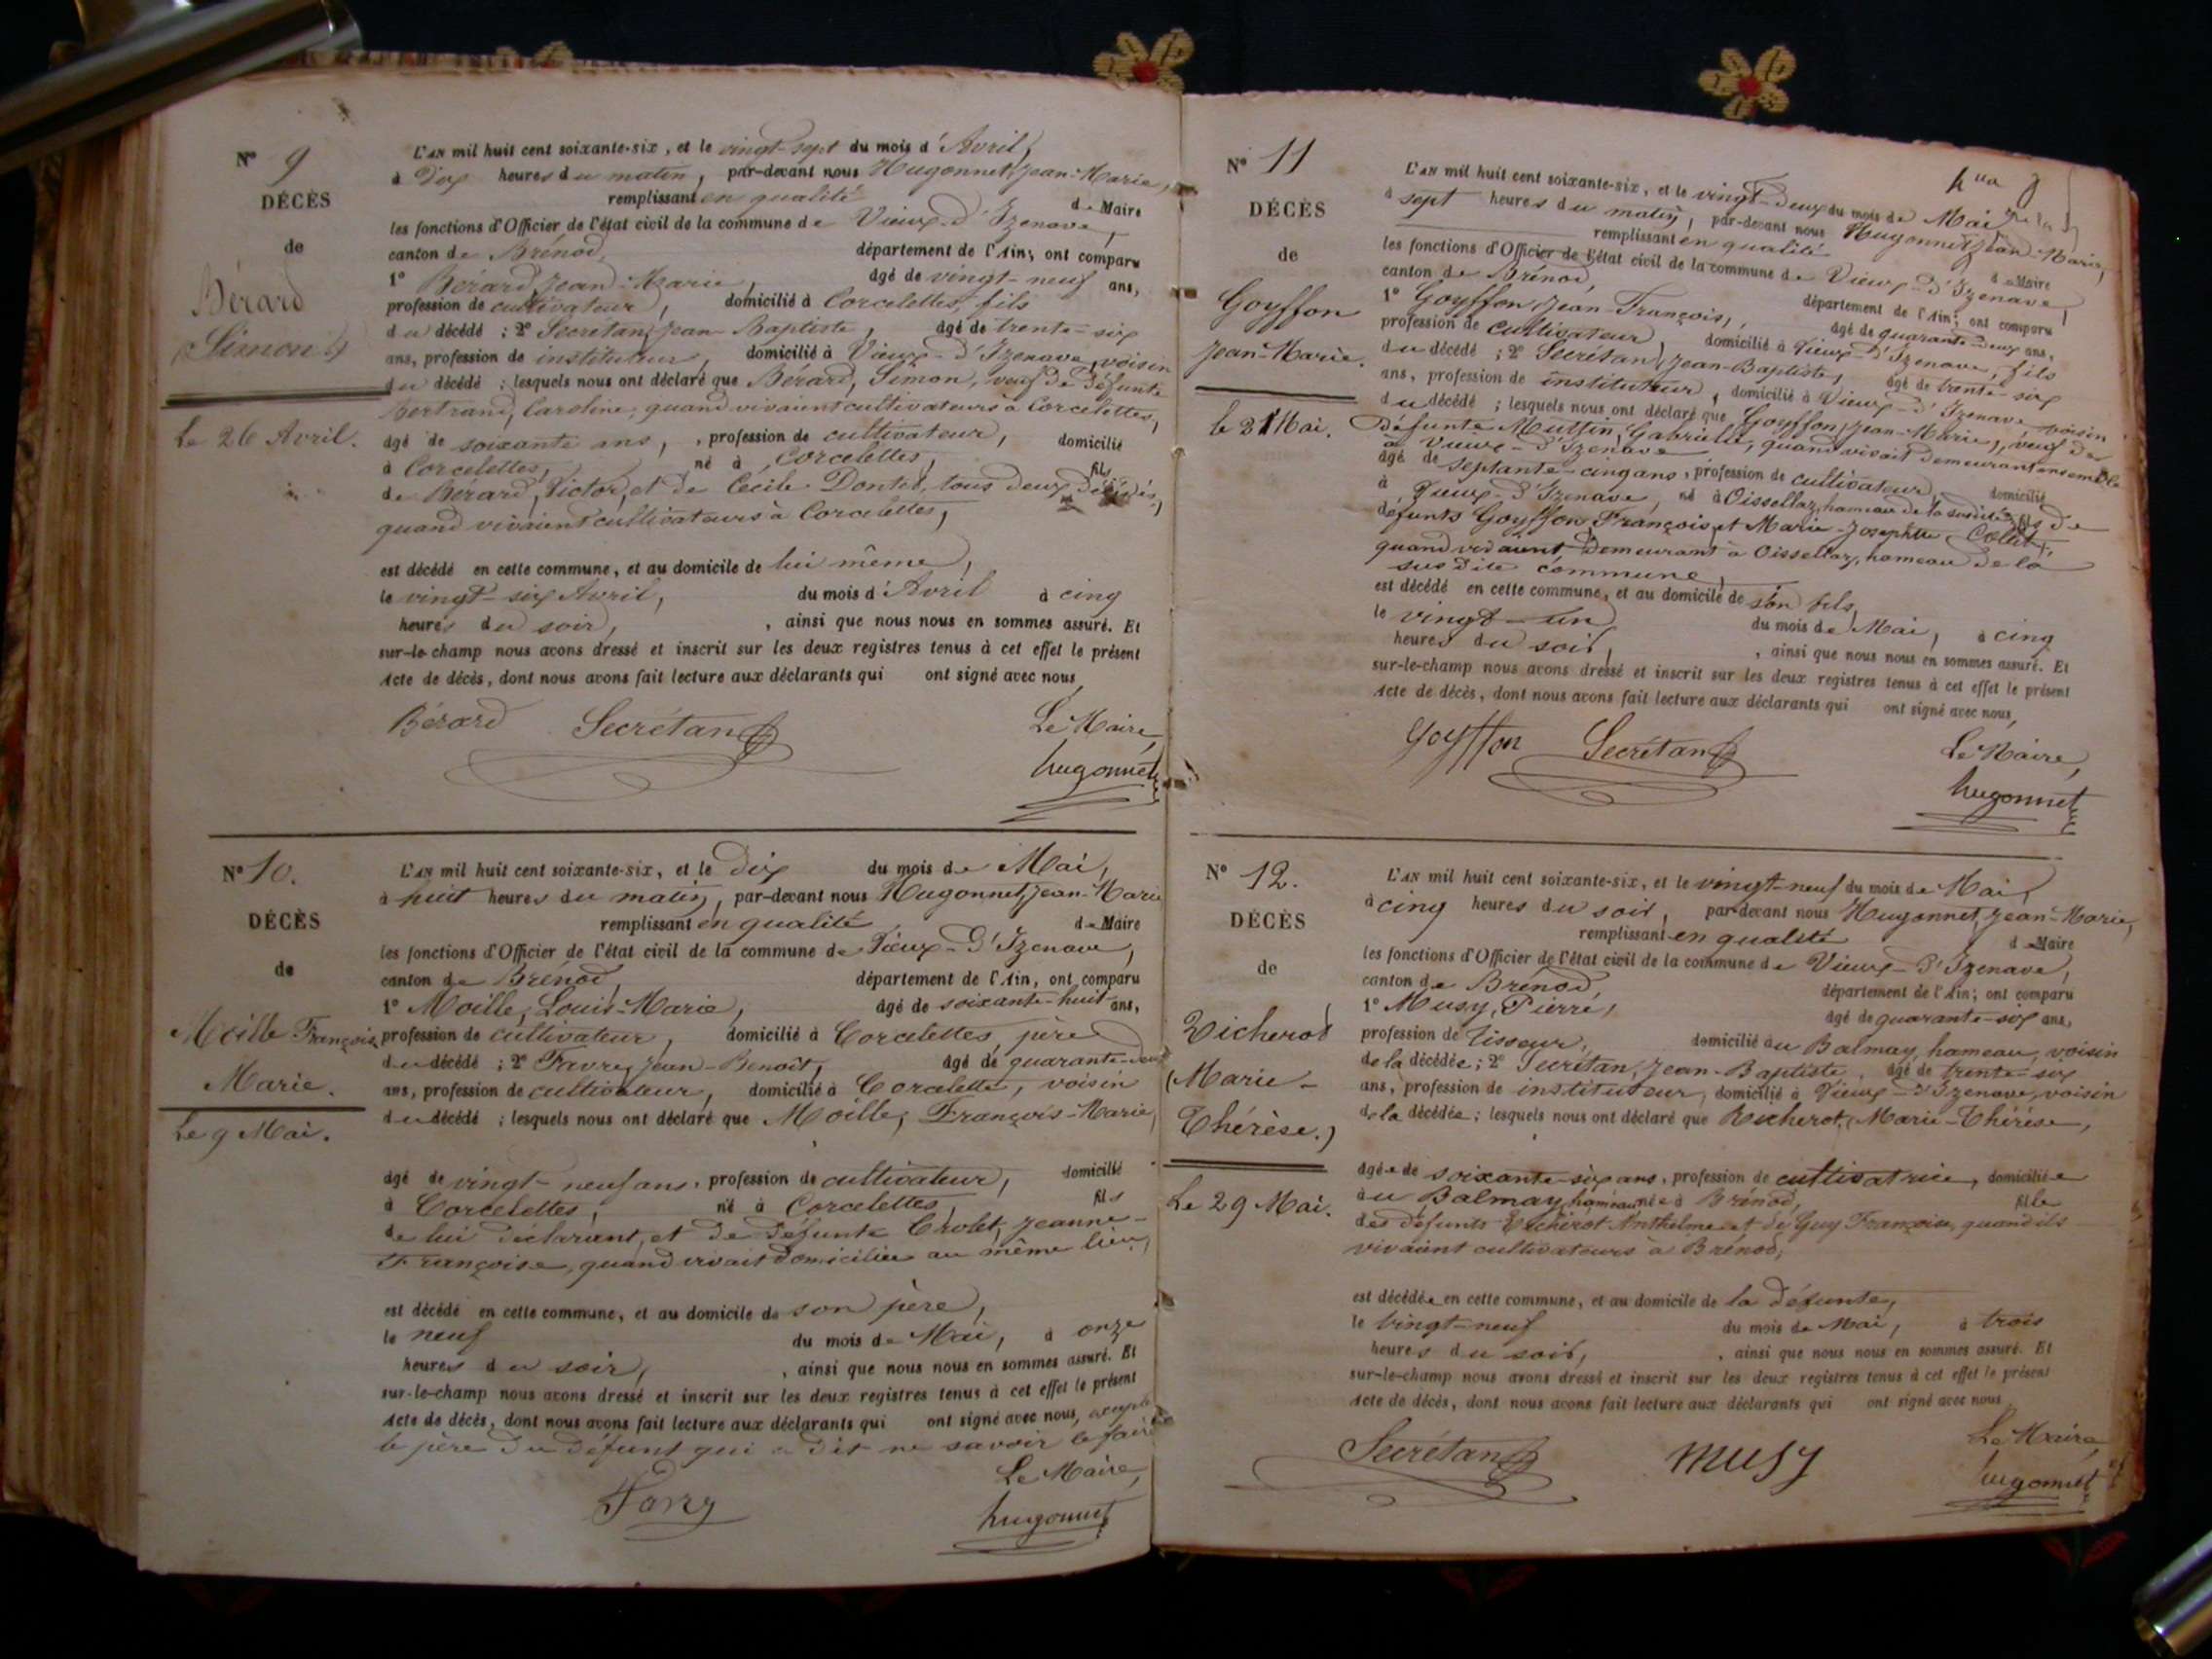 N° 9
DÉCÈS
de
Bérard
Simon
Le 26 Avril.
L'AN mil huit cent soixante-six, et le vingt-sept du mois d'Avril,
à Dix heures du matin, par-devant nous Hugonnet, Jean-Marie,
remplissant en qualité de Maire
les fonctions d'Officier de l'état civil de la commune de Vieux-d'Izenave,
canton de Brénod, département de l'Ain; ont comparu
1° Bérard, Jean-Marie, âgé de vingt-neuf ans,
profession de cultivateur, domicilié à Corcelettes, fils
du décédé; 2° Secrétan, Jean-Baptiste, âgé de trente-six
ans, profession de instituteur, domicilié à Vieux-d'Izenave, voisin
du décédé; lesquels nous ont déclaré que Bérard, Simon, veuf de défunte
Bertrand, Caroline, quand vivaient cultivateurs à Corcelettes,
âgé de soixante ans, profession de cultivateur, domicilié
à Corcelettes, né à Corcelettes, fils
de Bérard, Victor, et de Cécile Dontet, tous deux décédés,
quand vivaient cultivateurs à Corcelettes,
est décédé en cette commune, et au domicile de lui même,
le vingt-six Avril, du mois d'Avril à cinq
heures du soir, , ainsi que nous nous en sommes assuré. Et
sur-le-champ nous avons dressé et inscrit sur les deux registres tenus à cet effet le présent
Acte de décès, dont nous avons fait lecture aux déclarants qui ont signé avec nous,
Bérard Secrétan Le Maire,
hugonnet
N° 10.
DÉCÈS
de
Moille François
Marie.
Le 9 Mai.
L'AN mil huit cent soixante-six, et le dix du mois de Mai,
à huit heures du matin, par-devant nous Hugonnet, Jean-Marie
remplissant en qualité de Maire
les fonctions d'Officier de l'état civil de la commune de Vieux-d'Izenave,
canton de Brénod, département de l'Ain, ont comparu
1° Moille, Louis-Marie, âgé de soixante-huit ans,
profession de cultivateur, domicilié à Corcelettes, père
du décédé; 2° Favre, Jean-Benoît, âgé de quarante-deux
ans, profession de cultivateur, domicilié à Corcelettes, voisin
du décédé; lesquels nous ont déclaré que Moille, François-Marie,
âgé de vingt-neuf ans, profession de cultivateur, domicilié
à Corcelettes, né à Corcelettes, fils
de lui déclarant, et de défunte Crolet, Jeanne-
Françoise, quand vivait domiciliée au même lieu,
est décédé en cette commune, et au domicile de son père,
le neuf du mois de Mai, à onze
heures du soir, , ainsi que nous nous en sommes assuré. Et
sur-le-champ nous avons dressé et inscrit sur les deux registres tenus à cet effet le présent
Acte de décès, dont nous avons fait lecture aux déclarants qui ont signé avec nous, excepté
le père du défunt qui a dit ne savoir le faire
Le Maire,
hugonnet
N° 11
DÉCÈS
de
Goyffon
Jean-Marie.
le 21 Mai.
L'AN mil huit cent soixante-six, et le vingt-deux du mois de Mai
à sept heures du matin, par-devant nous Hugonnet, Jean-Marie,
remplissant en qualité de Maire
les fonctions d'Officier de l'état civil de la commune de Vieux-d'Izenave,
canton de Brénod, département de l'Ain; ont comparu
1° Goyffon, Jean-François, âgé de quarante-deux ans,
profession de cultivateur, domicilié à Vieux-d'Izenave, fils
du décédé; 2° Secrétan, Jean-Baptiste, âgé de trente-six
ans, profession de instituteur, domicilié à Vieux-d'Izenave, voisin
du décédé; lesquels nous ont déclaré que Goyffon, Jean-Marie, veuf de
défunte Gabrielle, quand vivait demeurant ensemble
à Vieux-d'Izenave
âgé de septante-cinq ans, profession de cultivateur, domicilié
à Vieux-d'Izenave, né à Oissellaz, hameau de la susdite, fils de
défunts Goyffon, François, et Marie-Josephte Colet,
quand vivaient demeurant à Oissellaz, hameau de la
susdite commune,
est décédé en cette commune, et au domicile de son fils,
le vingt-un du mois de Mai, à cinq
heures du soir, , ainsi que nous nous en sommes assuré. Et
sur-le-champ nous avons dressé et inscrit sur les deux registres tenus à cet effet le présent
Acte de décès, dont nous avons fait lecture aux déclarants qui ont signé avec nous,
Goyffon Secrétan Le Maire,
hugonnet
N° 12.
DÉCÈS
de
Vicherot
(Marie-
Thérèse.)
Le 29 Mai.
L'AN mil huit cent soixante-six, et le vingt-neuf du mois de Mai,
à cinq heures du soir, par-devant nous Hugonnet, Jean-Marie,
remplissant en qualité de Maire
les fonctions d'Officier de l'état civil de la commune de Vieux-d'Izenave,
canton de Brénod, département de l'Ain; ont comparu
1° Musy, Pierre, âgé de quarante-six ans,
profession de Tisseur, domicilié au Balmay, hameau, voisin
de la décédée; 2° Secrétan, Jean-Baptiste, âgé de trente-six
ans, profession de instituteur, domicilié à Vieux-d'Izenave, voisin
de la décédée; lesquels nous ont déclaré que Marie-Thérèse,
âgée de soixante-six ans, profession de cultivatrice, domiciliée
au Balmay, hameau, née à Brénod, fille
des défunts Anthelme et de Guy Françoise, quand ils
vivaient cultivateurs à Brénod,
est décédée en cette commune, et au domicile de la défunte,
le vingt-neuf du mois de Mai, à trois
heures du soir, , ainsi que nous nous en sommes assuré. Et
sur-le-champ nous avons dressé et inscrit sur les deux registres tenus à cet effet le présent
Acte de décès, dont nous avons fait lecture aux déclarants qui ont signé avec nous
Secrétan MUSY Le Maire,
hugonnet